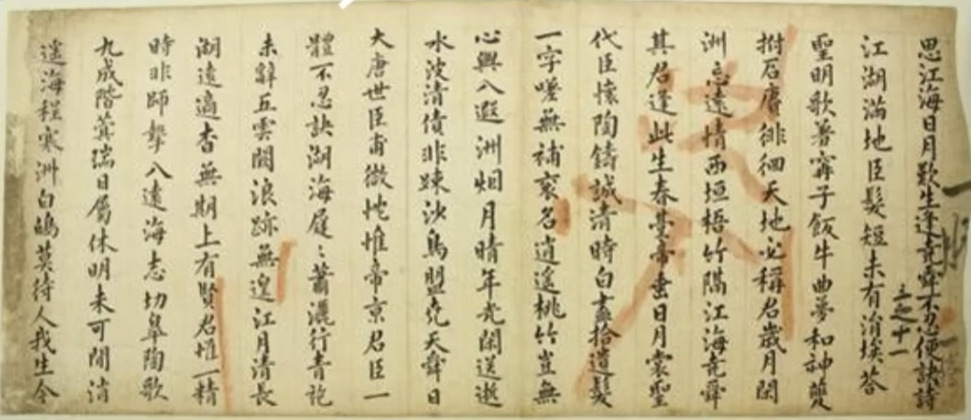 思江海日月歎生逢堯舜不忍便訣詩
江湖滿地臣髮短未有涓埃答
聖明歌著甯子飯牛曲夢和神夔
拊石賡徘徊天地必稱名歲月閑
洲忘遠情西垣梧竹隔江海堯舜
其君逢此生春臺帝垂日月裳聖
代臣懷陶鑄誠清時白晝拾遺髮
一字嗟無補袞名逍遙桃竹豈無
心興八遐洲烟月晴年光閑送逝
水波清債非踈沙鳥盟堯天舜日
大唐世臣甫微忱惟帝京名臣一
體不忍訣湖海屐之蕭灑行青蒞
未辭五雲闕浪跡無遑江月清長
湖遠適杳無期上有賢名堆一精
時非師摯八遠海志切皋陶歌
九成階蓂瑞日屬休明未可閒消
遙海程寒洲白鷗莫待人我生今